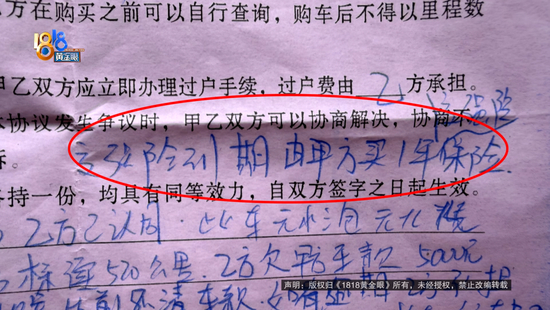 方在购买之前可以自行查询，购车后不得以里程数
1818
黄金眼
甲乙双方应立即办理过户手续，过户费由 乙 方承担。
本协议发生争议时，甲乙双方可以协商解决，协商不
诉。
险到期由甲方买1年保险
各持一份，均具有同等效力，自双方签字之日起生效。
乙方已认同 此车无水泡无火烧
表显520公里.乙方欠甲方车款 5000元
声明：版权归《1818黄金眼》所有，未经授权，禁止改编转载